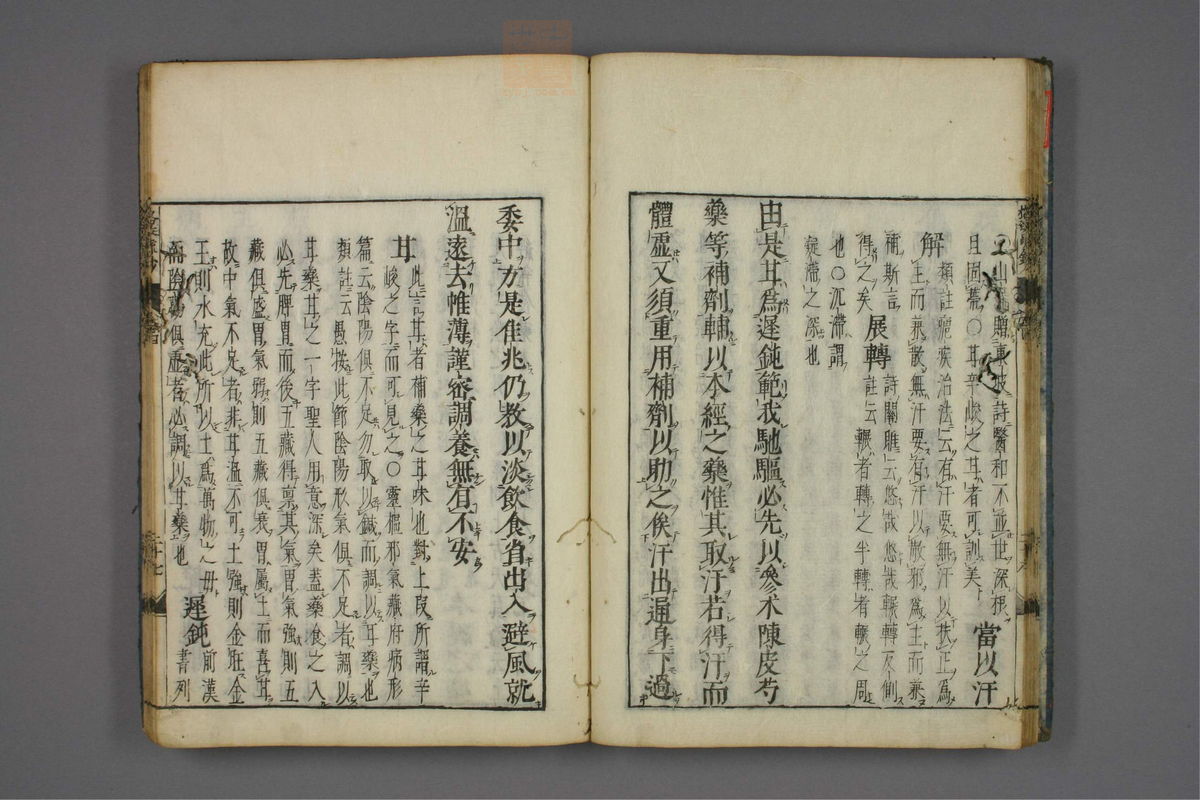 山
贈東坡詩醫和不並世深根
且固蔕○甘辛峻之甘者可訓美
當以汗
解
類註瘧疾治法云有汗要無汗以扶正爲
主而兼散無汗要有汗以散邪爲主而兼
補斯言
得之矣
展轉
詩關雎云悠哉悠哉輾轉反側
註云輾者轉之半轉者輾之周
也○沉滯謂
凝滯之深也
由是甘爲遲鈍範我馳驅必先以參朮陳皮芍
藥等補劑輔以本經之藥惟其取汗若得汗而
體虛又須重用補劑以助之俟汗出通身下過
委中方是佳兆仍教以淡飲食省出入避風就
溫遠去帷薄謹密調養無有不安
甘
此言甘者補藥之甘味也對上段所謂辛
峻之字而可見之○靈樞邪氣藏府病形
篇云陰陽俱不足勿取以鍼而調以甘藥也
類註云愚按此節陰陽形氣俱不足者調以
甘藥甘之一字聖人用意深矣蓋藥食之入
必先脾胃而後五藏得禀其氣胃氣強則五
藏俱盛胃氣弱則五藏俱衰胃屬土而喜甘
故中氣不足者非甘溫不可土強則金旺金
王則水充此所以土爲萬物之母
而陰陽俱虛者必調以甘藥也
遲鈍
前漢
書列